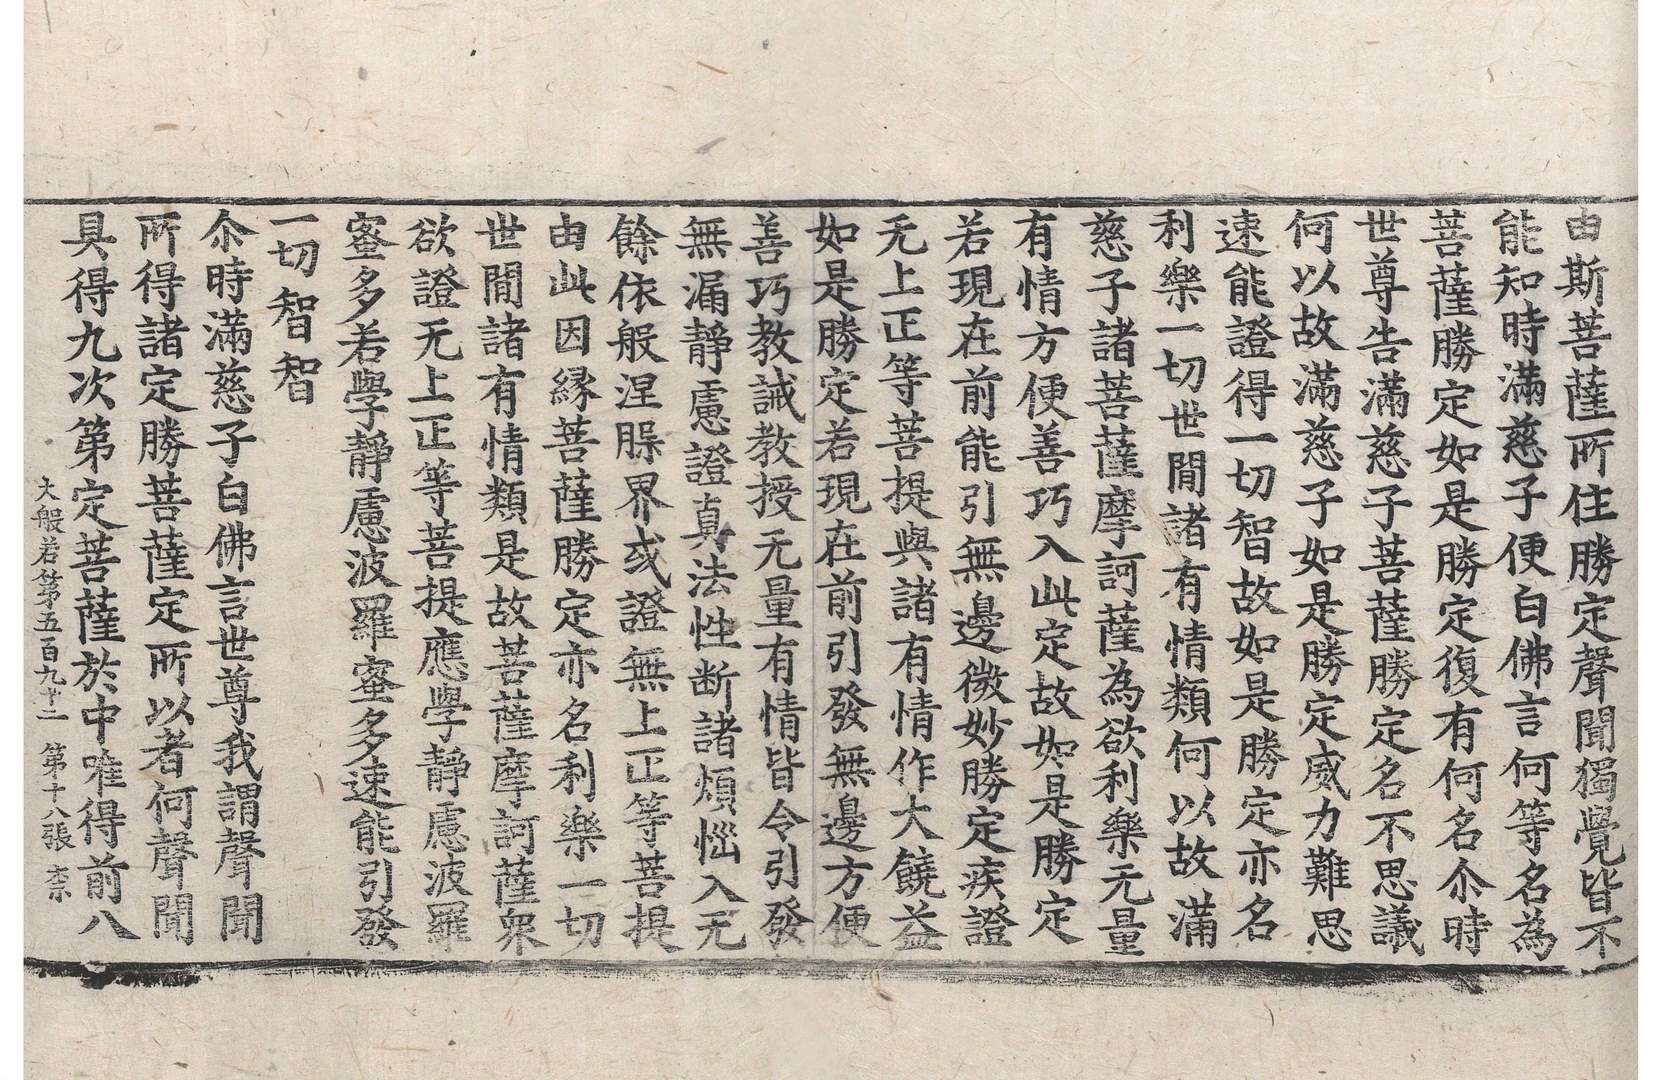 由斯菩薩所住勝定聲聞獨覺皆不
能知時滿慈子便白佛言何等名為
菩薩勝定如是勝定復有何名尒時
世尊告滿慈子菩薩勝定名不思議
何以故滿慈子如是勝定威力難思
速能證得一切智故如是勝定亦名
利樂一切世間諸有情類何以故滿
慈子諸菩薩摩訶薩為欲利樂无量
有情方便善巧入此定故如是勝定
若現在前能引無邊微妙勝定疾證
无上正等菩提與諸有情作大饒益
如是勝定若現在前引發無邊方便
善巧教誡教授无量有情皆令引發
無漏靜慮證真法性斷諸煩惱入无
餘依般涅槃界或證無上正等菩提
由此因縁菩薩勝定亦名利樂一切
世間諸有情類是故菩薩摩訶薩衆
欲證无上正等菩提應學靜慮波羅
蜜多若學靜慮波羅蜜多速能引發
一切智智
尒時滿慈子白佛言世尊我謂聲聞
所得諸定勝菩薩定所以者何聲聞
具得九次第定菩薩於中唯得前八
大般若第五百九十二 第十八張 柰